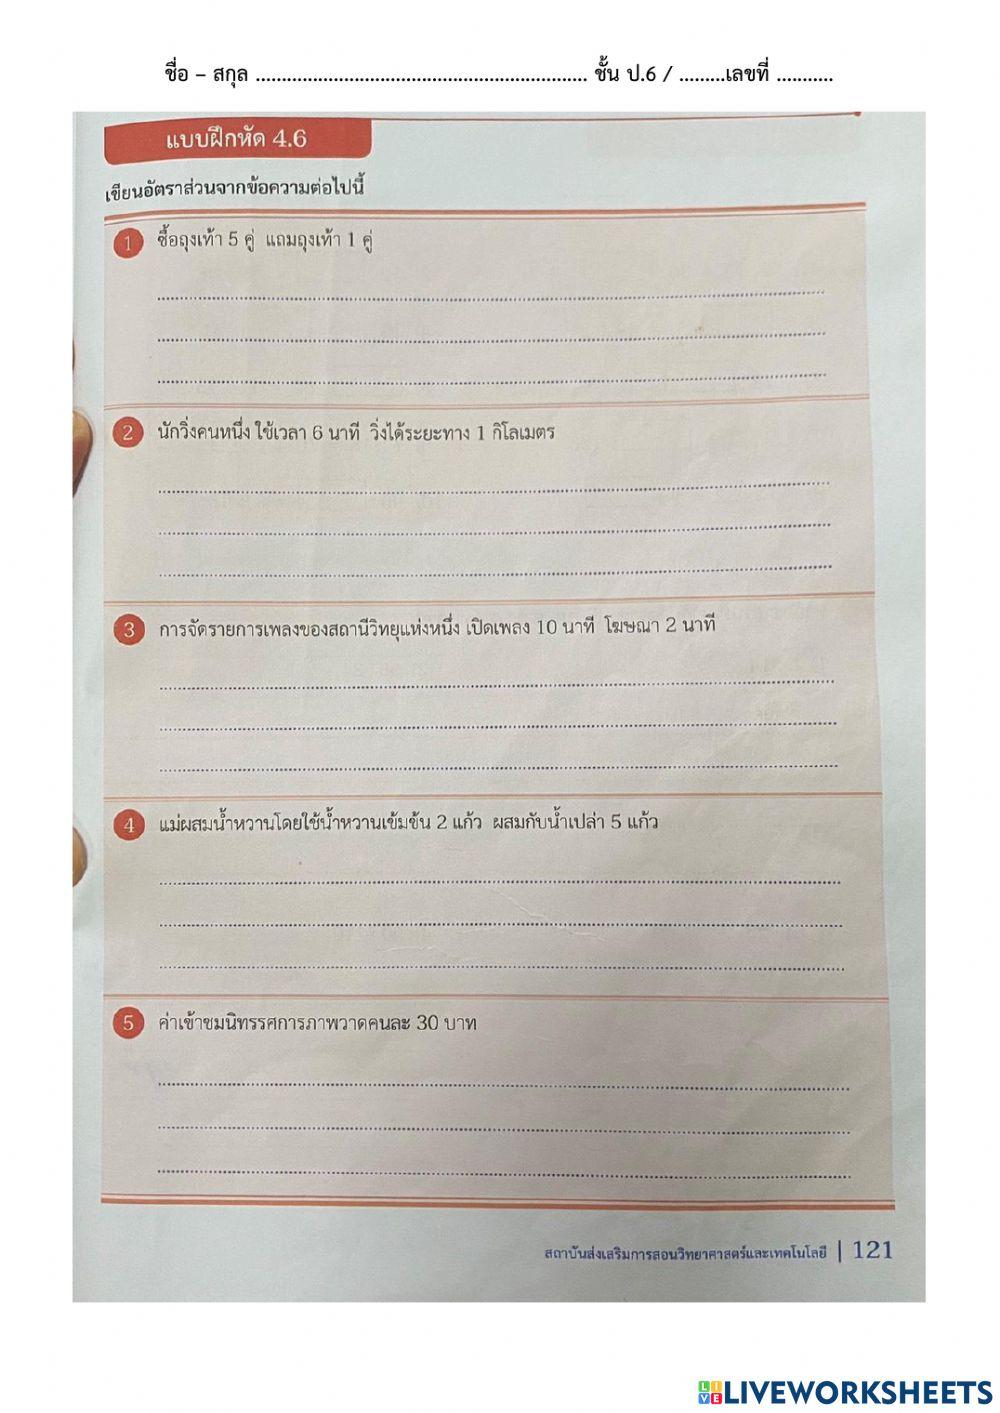 ชื่อ – สกุล ................................................................ ชั้น ป.6 / .........เลขที่ ...........
แบบฝึกหัด 4.6
เขียนอัตราส่วนจากข้อความต่อไปนี้
1 ซื้อถุงเท้า 5 คู่ แถมถุงเท้า 1 คู่
2 นักวิ่งคนหนึ่ง ใช้เวลา 6 นาที วิ่งได้ระยะทาง 1 กิโลเมตร
3 การจัดรายการเพลงของสถานีวิทยุแห่งหนึ่ง เปิดเพลง 10 นาที โฆษณา 2 นาที
4 แม่ผสมน้ำหวานโดยใช้น้ำหวานเข้มข้น 2 แก้ว ผสมกับน้ำเปล่า 5 แก้ว
5 ค่าเข้าชมนิทรรศการภาพวาดคนละ 30 บาท
สถาบันส่งเสริมการสอนวิทยาศาสตร์และเทคโนโลยี | 121
LIVEWORKSHEETS